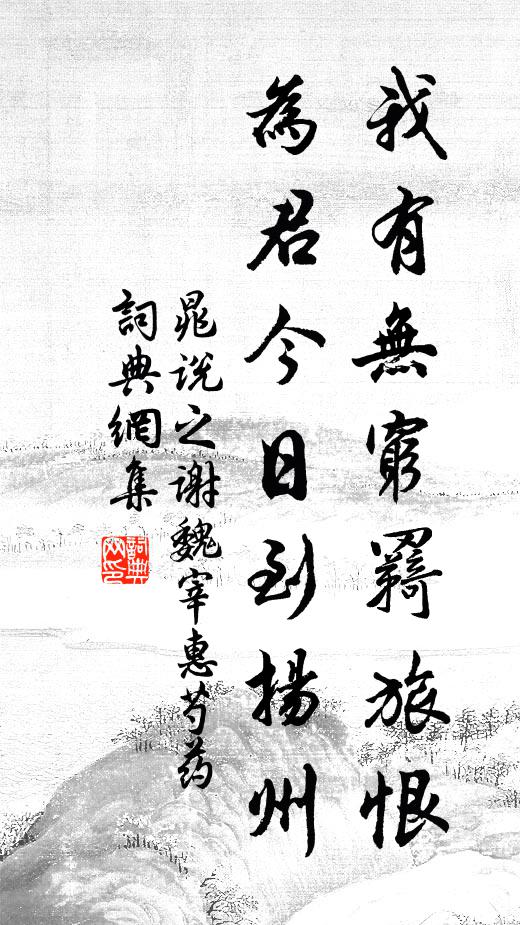 我有無窮羇旅恨
為君今日到揚州
晁说之谢魏宰惠芍药
詞典網集
詞典网印